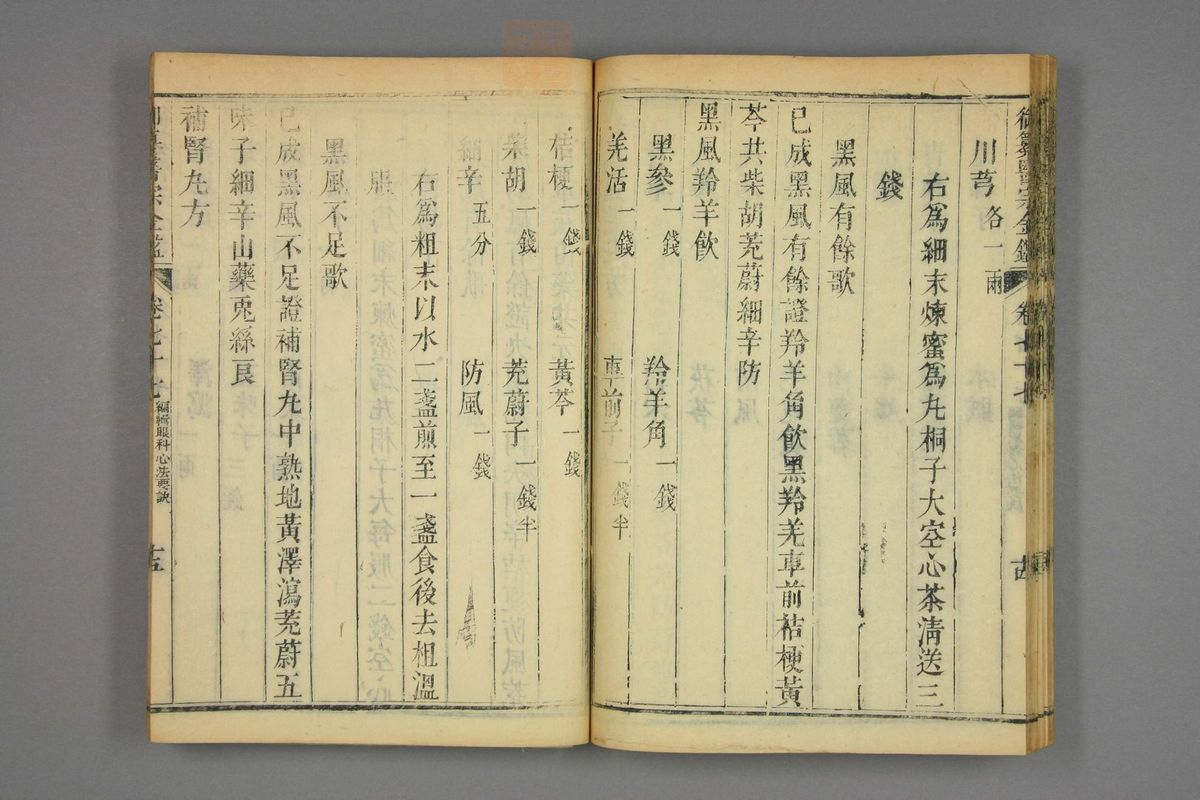 御纂醫宗金鑑 卷七十七 古
川芎 各一兩
右爲細末煉蜜爲丸桐子大空心茶淸送三
錢
黑風有餘歌
已成黑風有餘證羚羊角飮黑羚羌車前桔梗黃
芩共柴胡茺蔚細辛防
黑風羚羊飮
黑參一錢 羚羊角一錢
羌活一錢 車前子一錢半
桔梗一錢 黃芩一錢
柴胡一錢 茺蔚子一錢半
細辛五分 防風一錢
右爲粗末以水二盞煎至一盞食後去柤溫
黑風不足歌
已成黑風不足證補腎丸中熟地黃澤瀉茺蔚五
味子細辛山藥兎絲良
補腎丸方
卷七十七 編輯眼科心法要訣